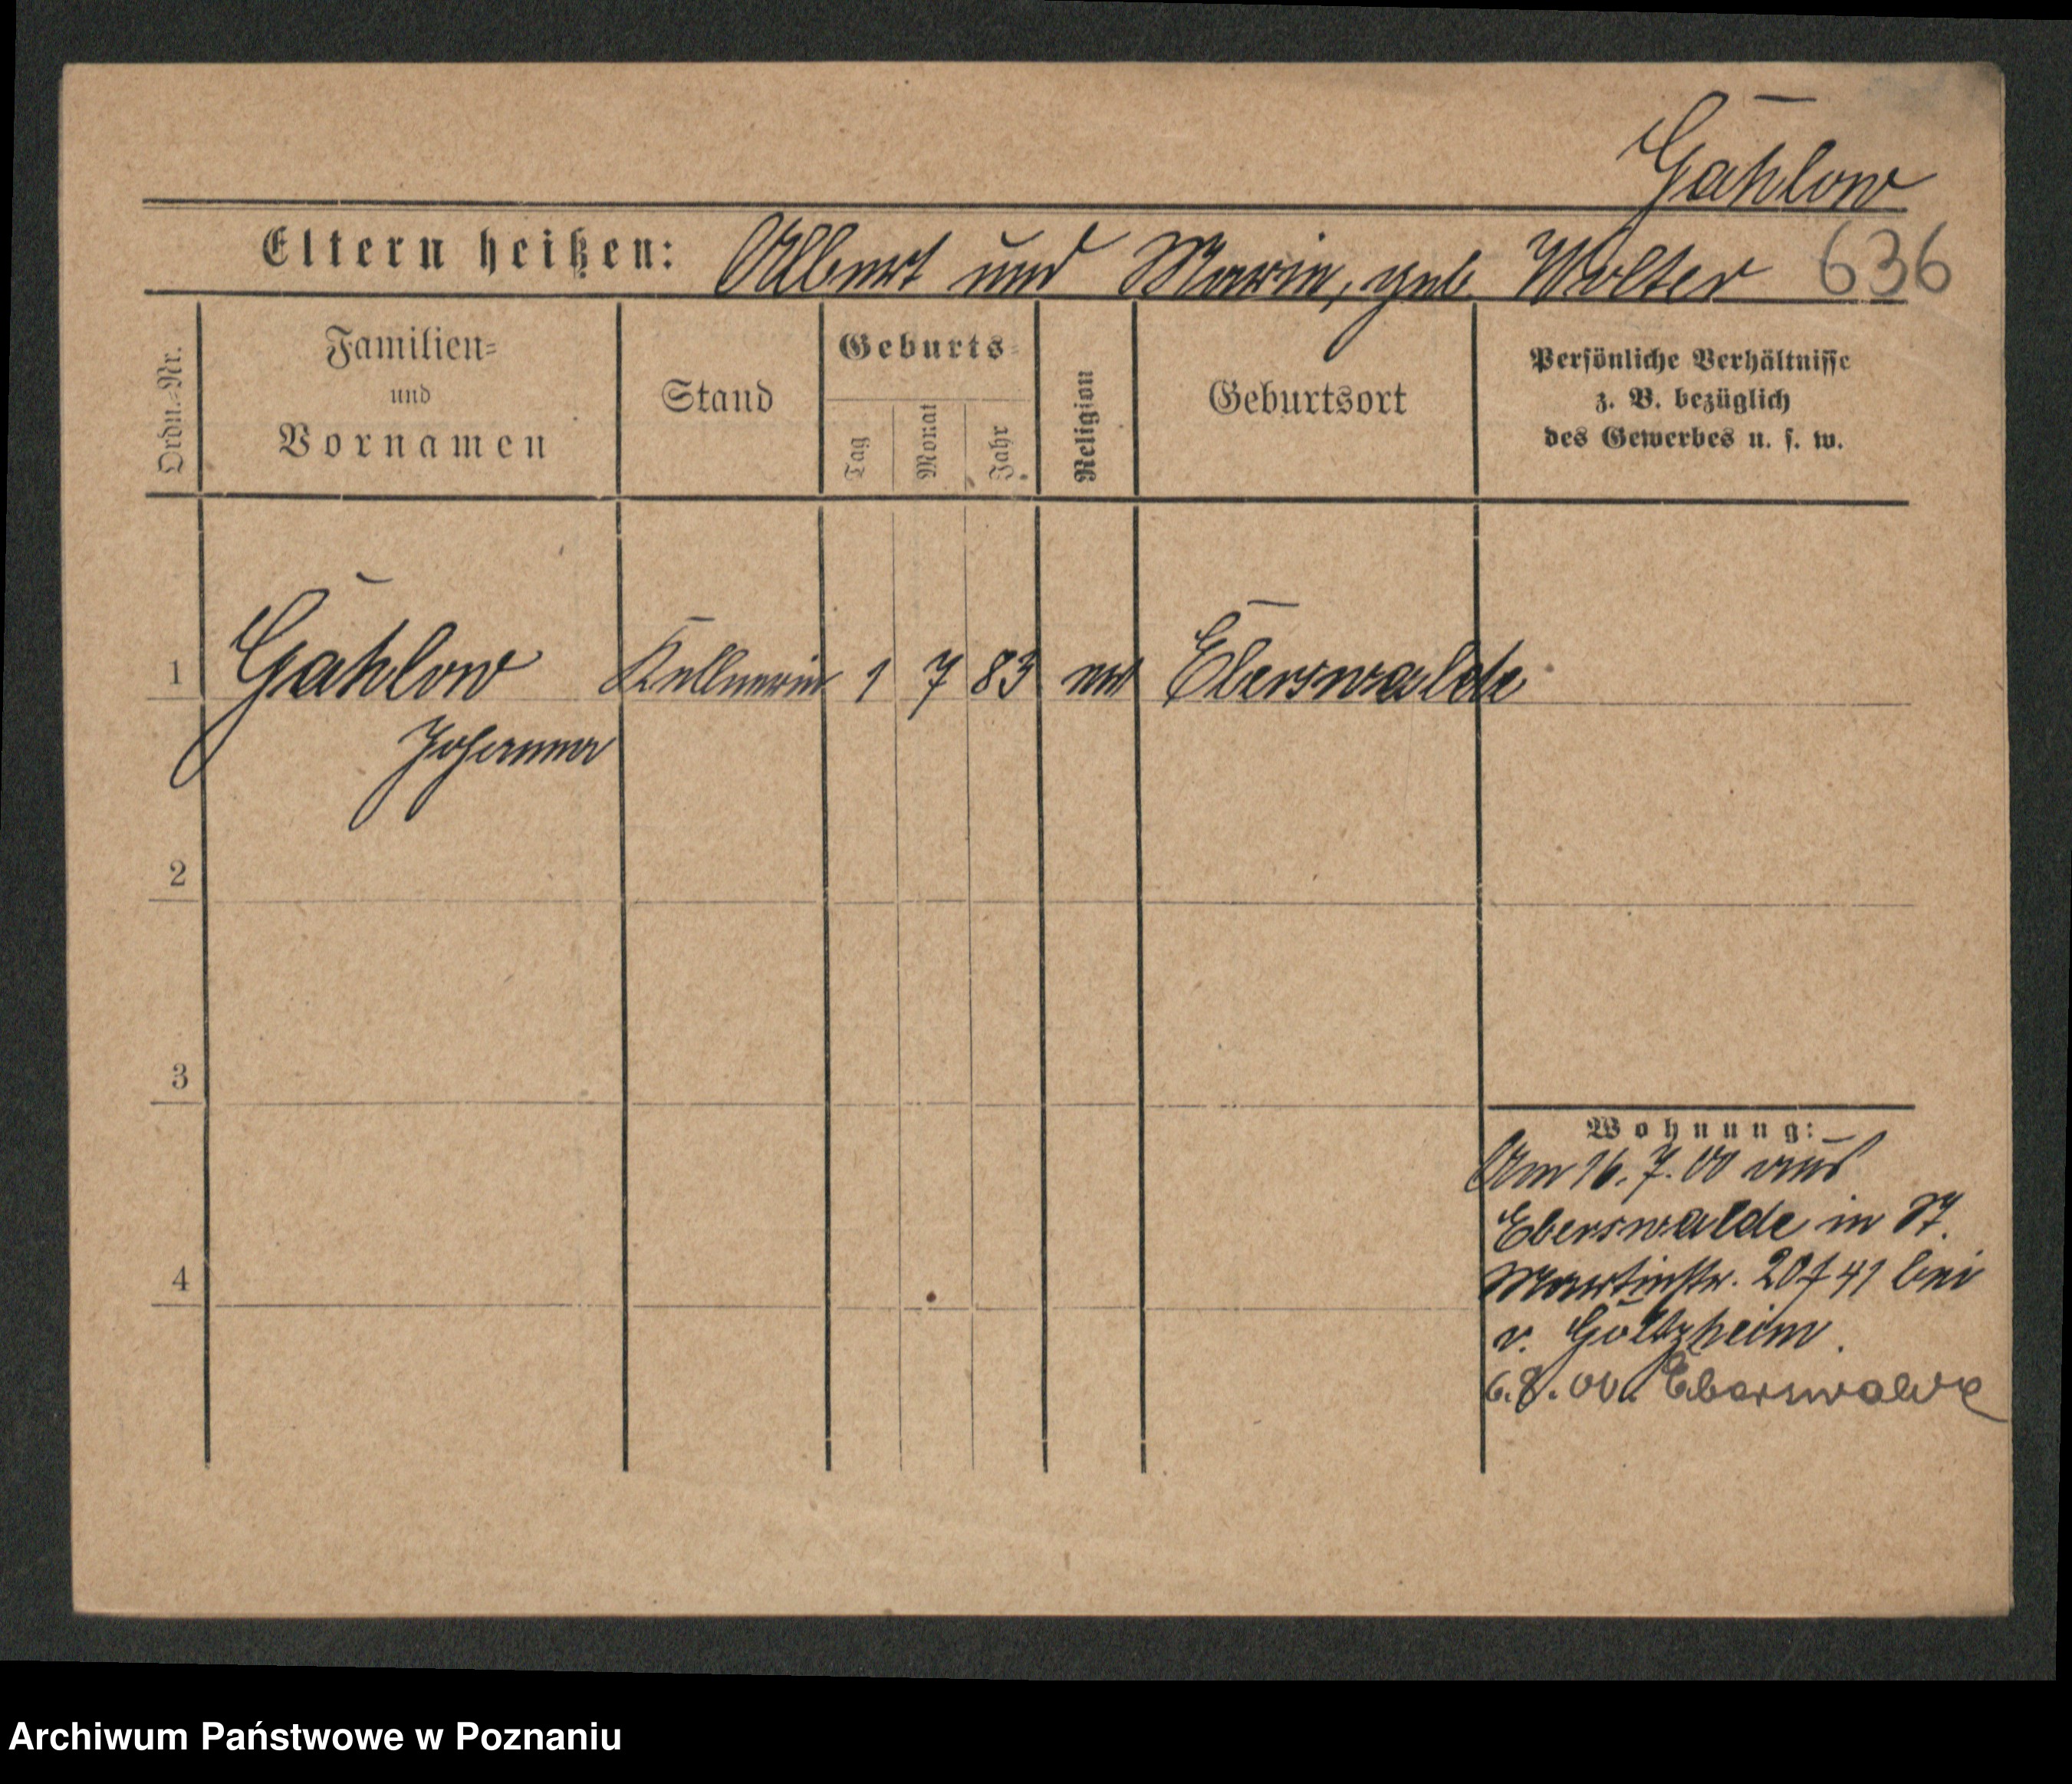 Gahlow
Eltern heißen: Albert und Marie, geb. Wolter 636
Ordn.-Nr.
Familien-
und
Vornamen
Stand
Geburts-
Tag
Monat
Jahr
Religion
Geburtsort
Persönliche Verhältnisse
z. B. bezüglich
des Gewerbes u. s. w.
1 Gahlow Kellnerin 1 7 83 ev Eberswalde
Johanna
2
3
4
Wohnung:
Am 16. 7. 00 aus
Eberswalde in St.
Martinstr. 20/41 bei
v. Goltzheim.
6.8.00. Eberswalde
Archiwum Państwowe w Poznaniu